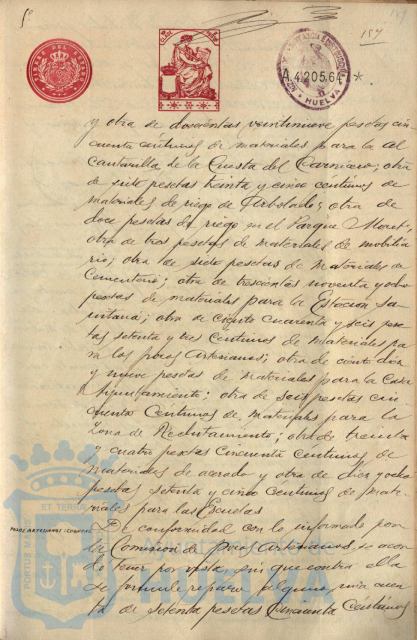 5º
157
TIMBRE DEL ESTADO
A.4.205.64
HUELVA
y otra de doscientas veintinueve pesetas cin
cuenta centimos de materiales para la al
cantarilla de la Cuesta del Carnicero; otra
de siete pesetas treinta y cinco céntimos de
materiales de riego de Arbolado; otra de
doce pesetas de riego en el Parque Moret;
otra de tres pesetas de materiales de mobilia
rio; otra de siete pesetas de materiales de
Cementerio; otra de trescientas noventa y ocho
pesetas de materiales para la Estacion sa
nitaria; otra de ciento cuarenta y seis pese
tas setenta y tres centimos de materiales pa
ra los pozos Artesianos; otra de ciento diez
y nueve pesetas de materiales para la Casa
Ayuntamiento; otra de seis pesetas cin
cuenta Centimos de materiales para la
Zona de Reclutamiento; otra de treinta
y cuatro pesetas cincuenta centimos de
materiales de acerado y otra de diez y ocho
pesetas setenta y cinco céntimos de mate
riales para las Escuelas
POZOS ARTESIANOS
De conformidad con lo informado por
la Comision de pozos Artesianos, se acor
dó tener por vista, sin que contra ella
se formule reparo alguno, una cuen
ta de setenta pesetas cincuenta céntimos
PORTUS
ET TERRÆ
Ayuntamiento de
HUELVA